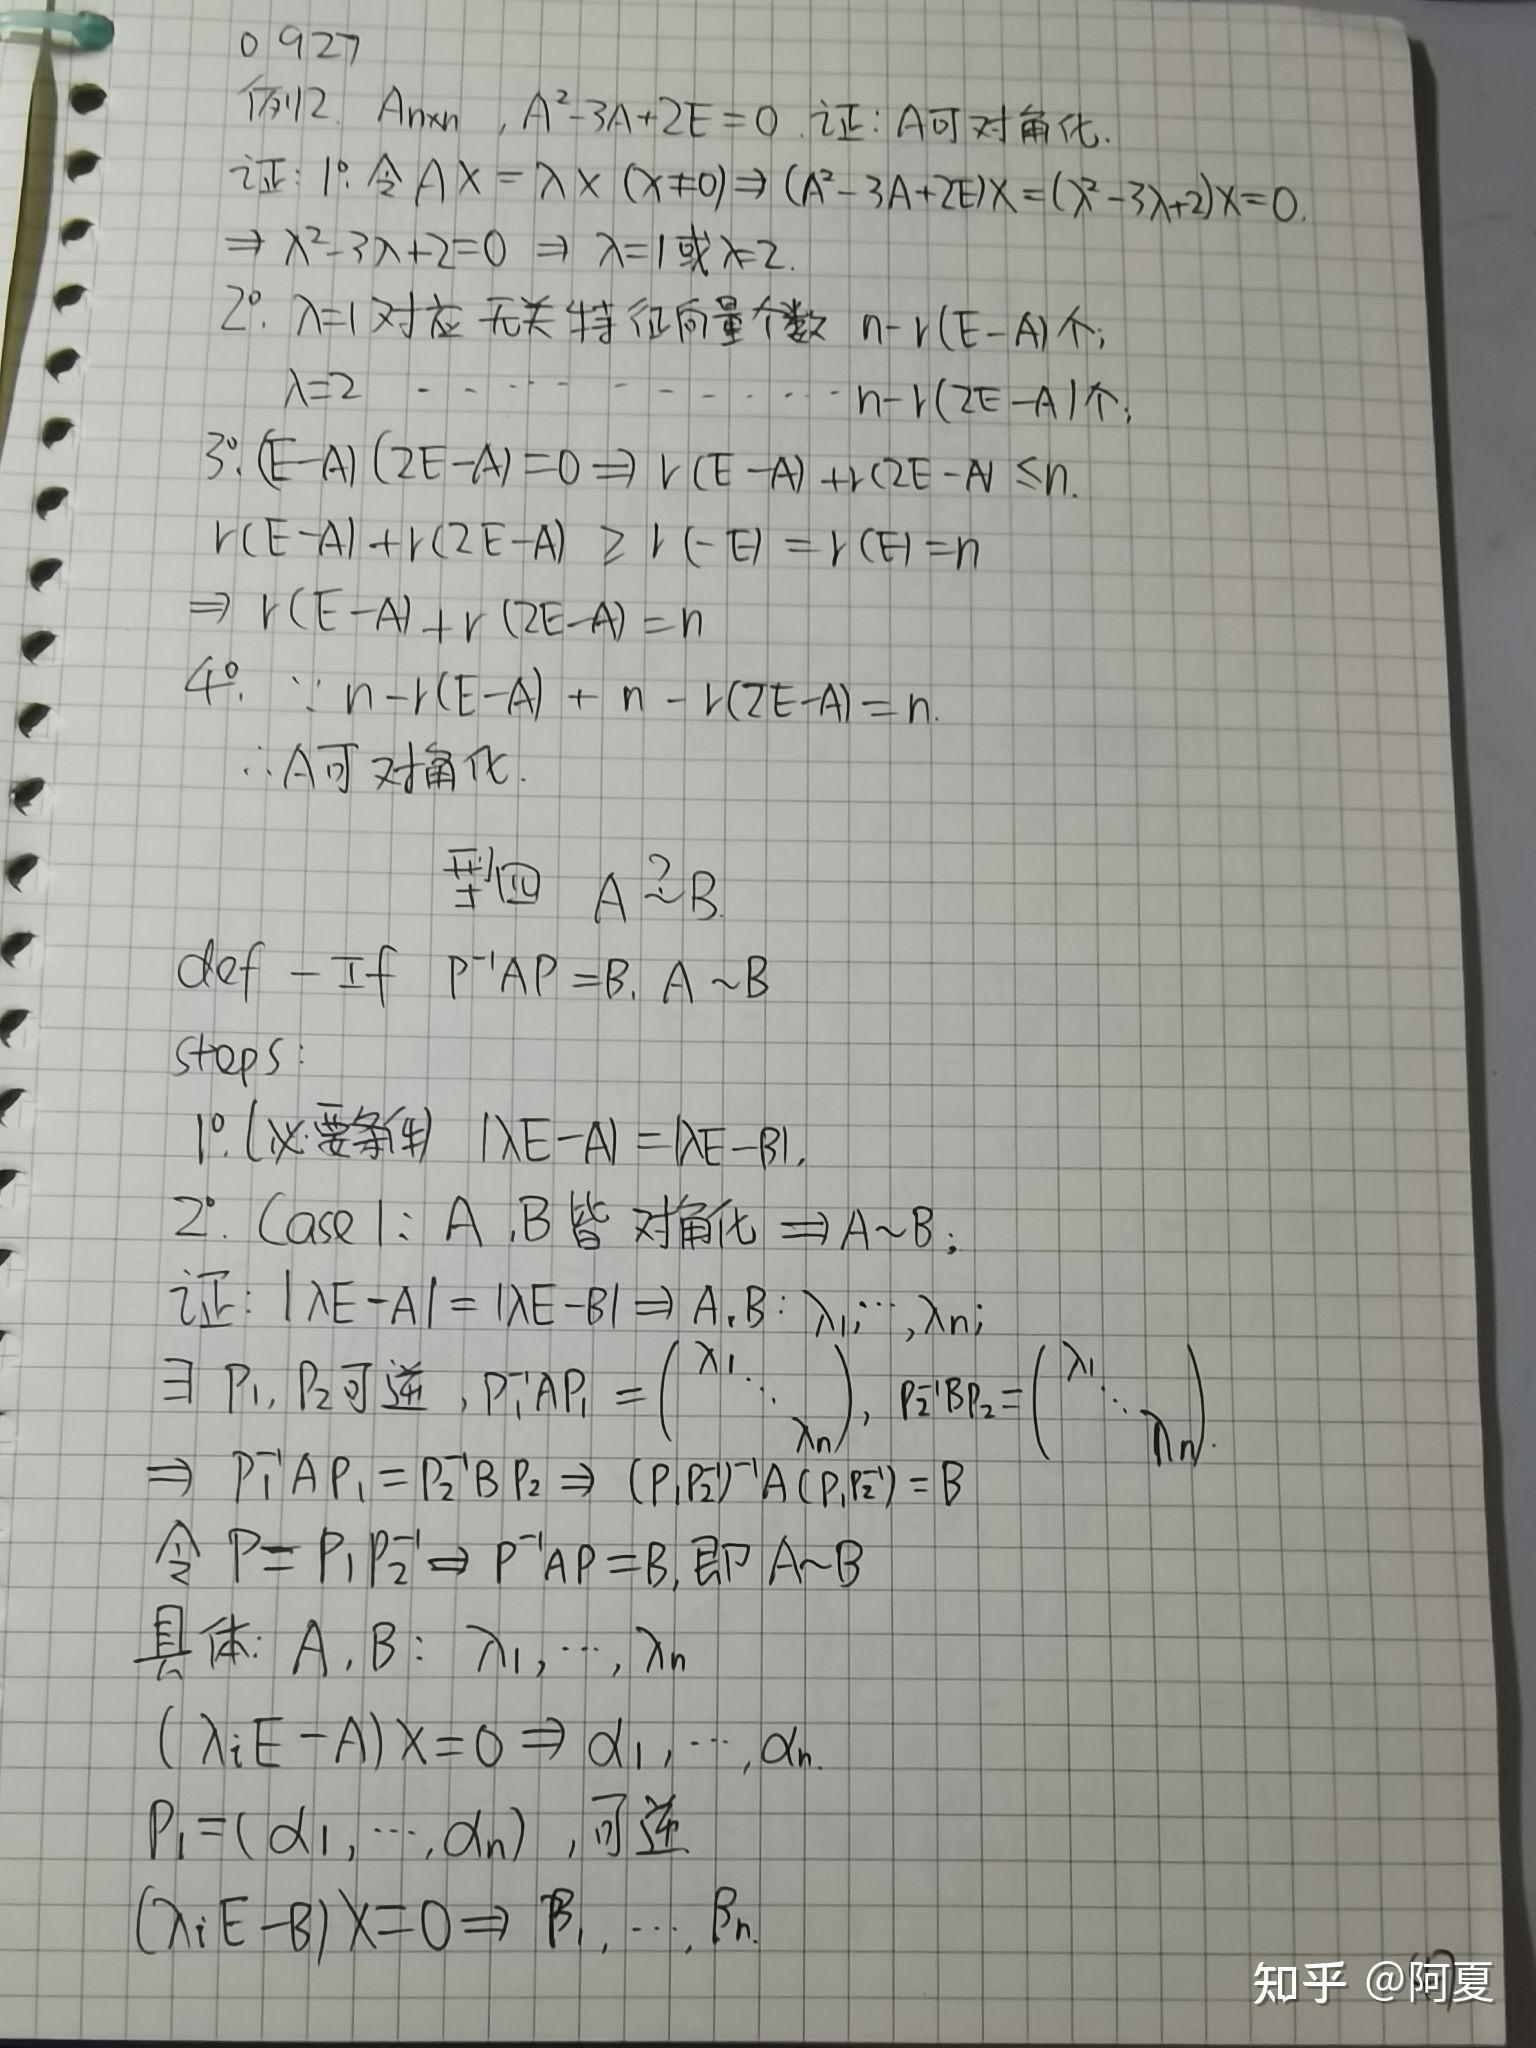 0927
例12. An×n , A²-3A+2E=0. 证: A可对角化.
证: 1°. 令AX=λX (X≠0)⇒(A²-3A+2E)X=(λ²-3λ+2)X=0.
⇒ λ²-3λ+2=0 ⇒ λ=1或λ=2.
2°. λ=1对应无关特征向量个数 n-r(E-A)个;
λ=2 - - - - - - - - - - - n-r(2E-A)个;
3°. (E-A)(2E-A)=0⇒ r(E-A)+r(2E-A)≤n.
r(E-A)+r(2E-A) ≥ r(-E)=r(E)=n
⇒ r(E-A)+r(2E-A)=n
4°. ∵ n-r(E-A) + n-r(2E-A)=n.
∴A可对角化.
型四 A ~? B.
def - If P⁻¹AP=B. A~B
steps:
1°. (必要条件) |λE-A|=|λE-B|.
2°. Case1: A.B皆对角化 ⇒A~B;
证: |λE-A|=|λE-B|⇒A.B: λ1,…,λn;
∃ P1, P2可逆, P1⁻¹AP1=(λ1 ⋱ λn), P2⁻¹BP2=(λ1 ⋱ λn).
⇒ P1⁻¹AP1=P2⁻¹BP2 ⇒ (P1P2⁻¹)⁻¹A(P1P2⁻¹)=B
令P=P1P2⁻¹⇒P⁻¹AP=B,即A~B
具体: A.B: λ1,…,λn
(λiE-A)X=0⇒α1,…,αn.
P1=(α1,…,αn),可逆
(λiE-B)X=0⇒ β1,…,βn.
知乎 @阿夏